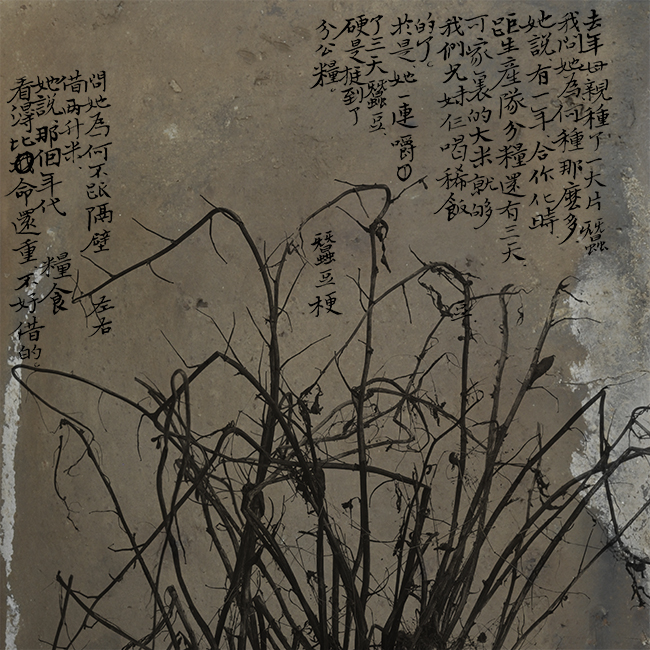 去年母親種了一大片蠶
我问她為何種那麽多
她說有一年合作化時
距生產隊分糧還有三天
可家裏的大米就够
我們兄妹仨喝稀飯
的了。
於是她一連嚼
了三天蠶豆
硬是挺到了
分公糧。
蠶豆梗
问她為何不跟隔壁左右
借两升米
她說那個年代糧食
看得比命還重不好借的。